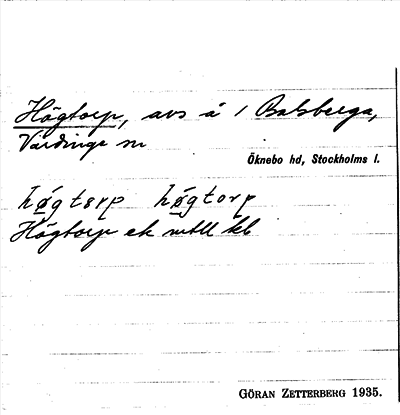 Högtorp, avs å 1 Balsberga,
Vårdinge sn
Öknebo hd, Stockholms l.
hø̀gtørp hø̀gtorp
Högtorp ek mtll kb
GÖRAN ZETTERBERG 1935.